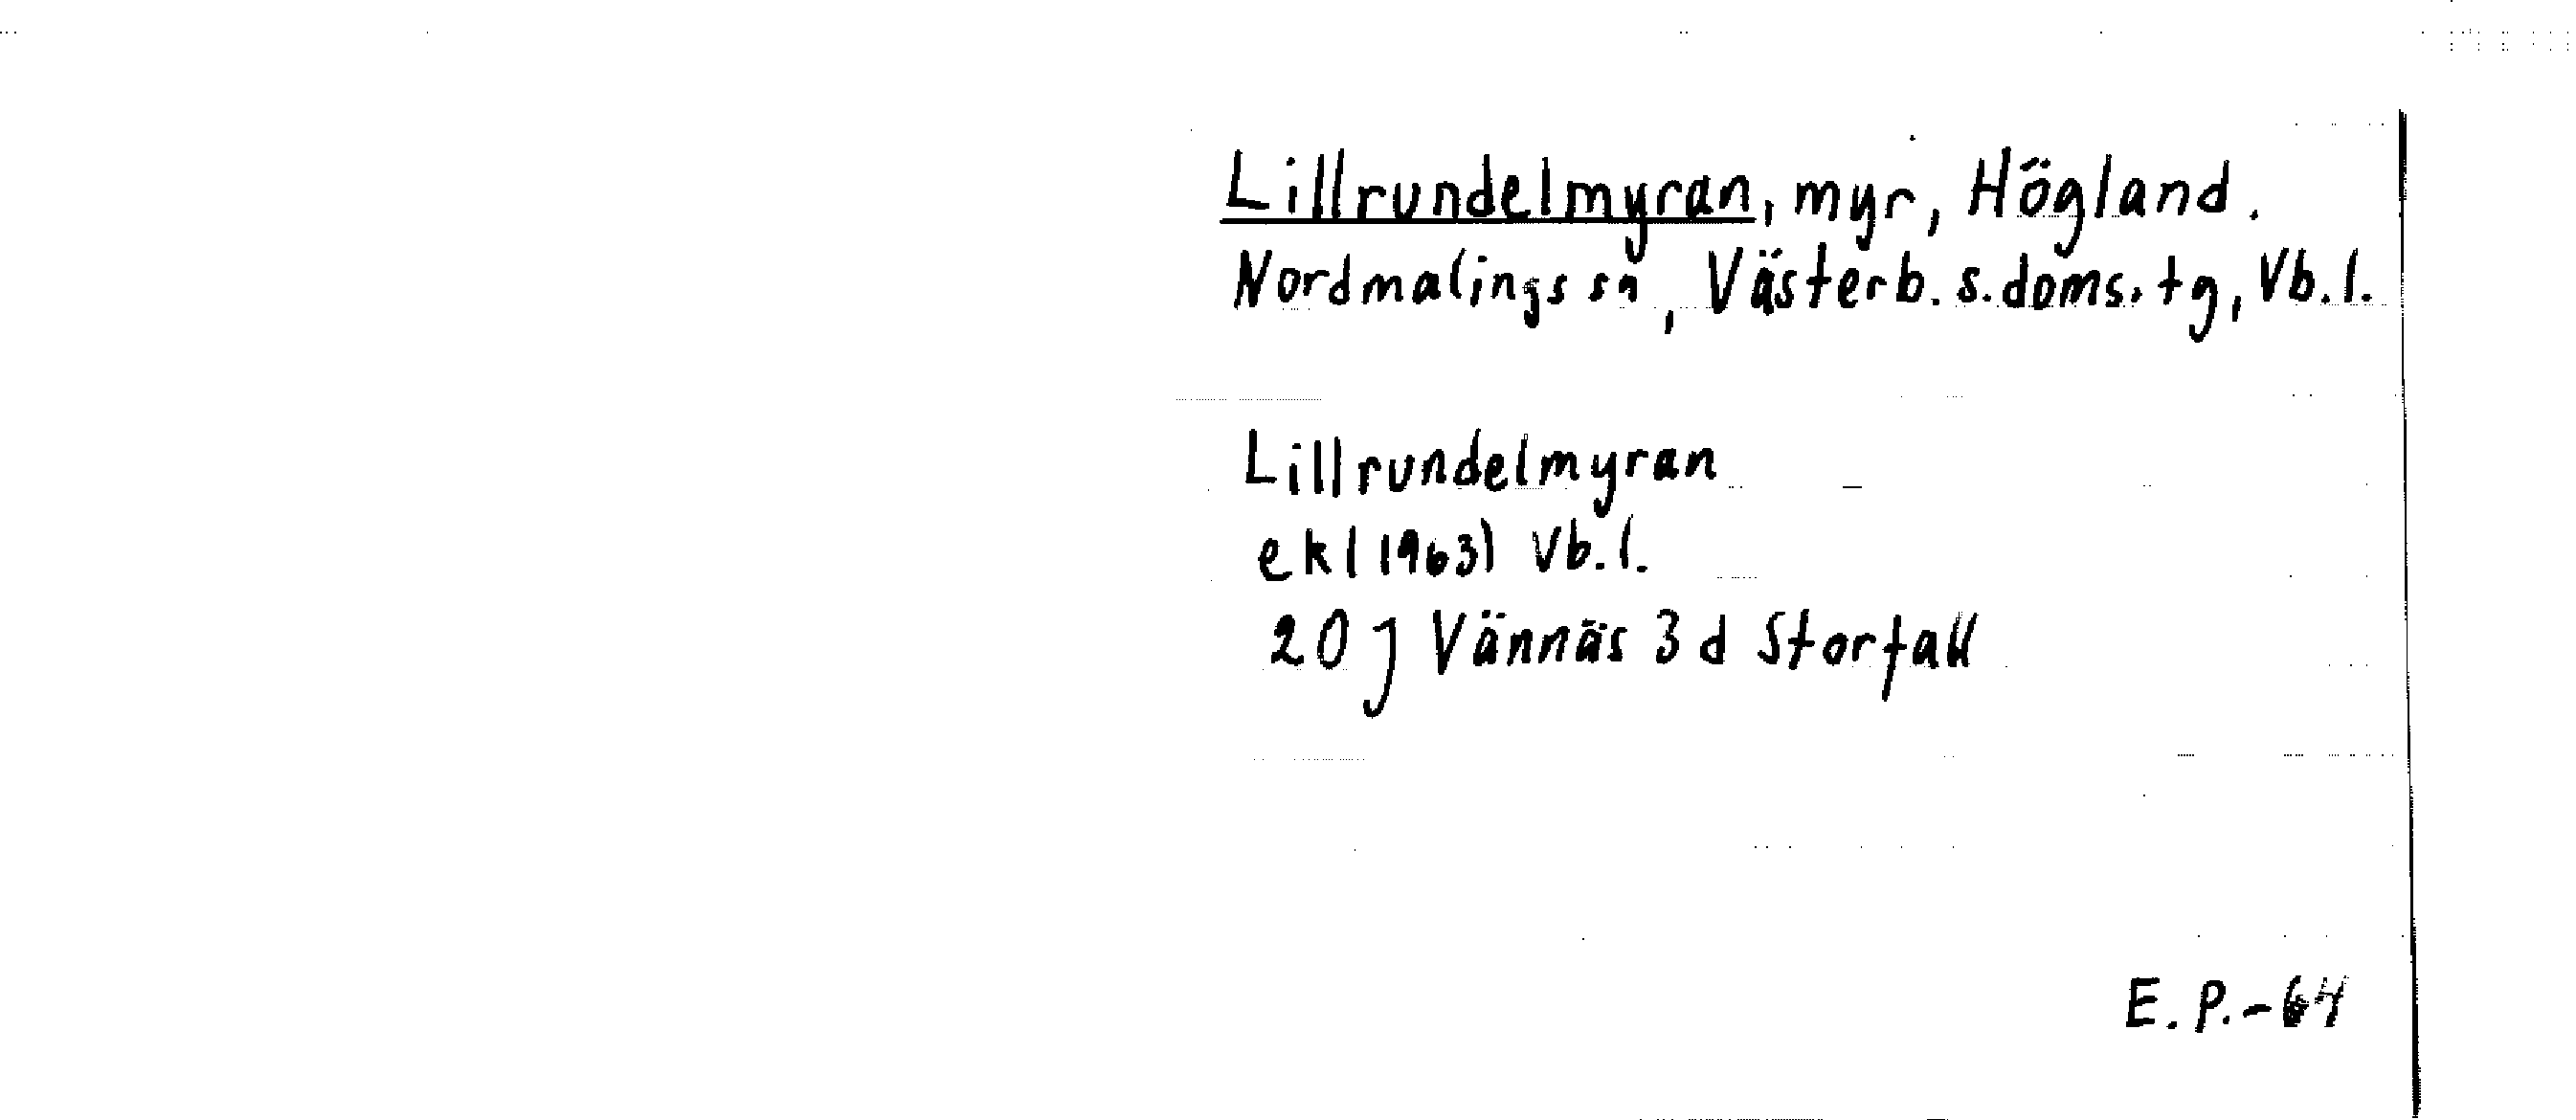 Lillrundelmyran, myr, Högland.
Nordmalings sn, Västerb. s. doms. tg, Vb. l.
Lillrundelmyran
ek(1963) Vb. l.
20 J Vännäs 3 d Storfall
E. P. - 64